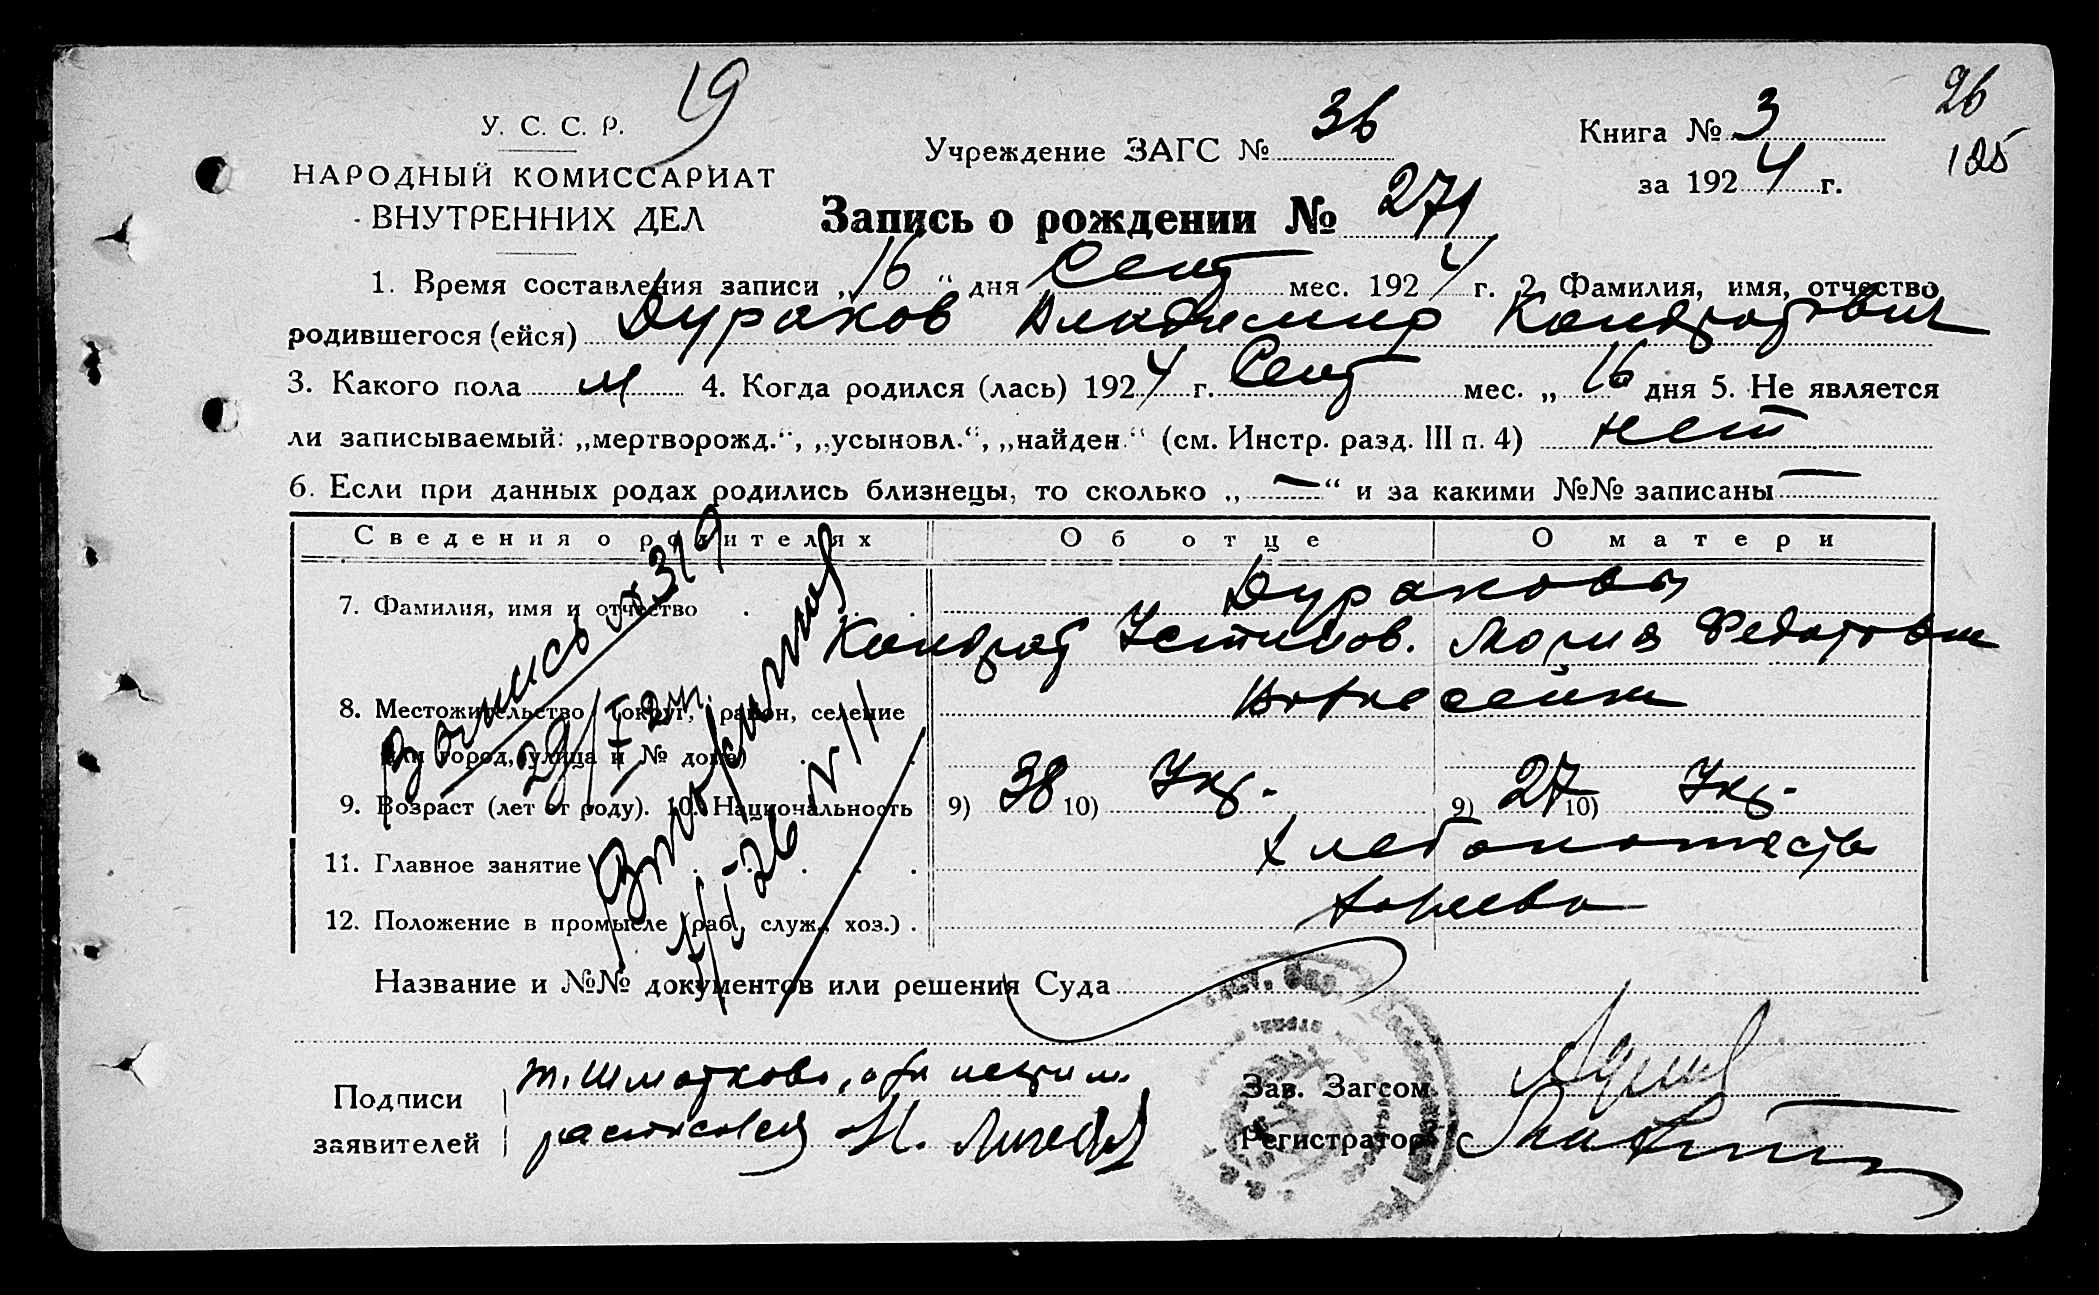 19
26
125
У. С. С. Р.
НАРОДНЫЙ КОМИССАРИАТ
ВНУТРЕННИХ ДЕЛ
Учреждение ЗАГС № 36
Книга № 3
за 1924 г.
Запись о рождении № 271
1. Время составления записи „16“ дня Сент мес. 1924 г. 2. Фамилия, имя, отчество
родившегося (ейся) Дураков Владимир Кондратович
3. Какого пола м 4. Когда родился (лась) 1924 г. Сент мес. „16 дня 5. Не является
ли записываемый: „мертворожд.“, „усыновл.“, „найден.“ (см. Инстр. разд. III п. 4) нет
6. Если при данных родах родились близнецы, то сколько „—“ и за какими №№ записаны —
Сведения о родителях Об отце О матери
7. Фамилия, имя и отчество Дураковы
Кондрат Устинов. Мария Федотовна
8. Местожительство (округ, район, селение
или город, улица и № дома)
9. Возраст (лет от роду). 10. Национальность 9) 38 10) Укр. 9) 27 10) Укр.
11. Главное занятие Хлебопашество
12. Положение в промысле (раб., служ., хоз.) . хозяева
Запись № 319
Название и №№ документов или решения Суда
Подписи
заявителей
т. Шматкова, а за негр.
расписался М.
Зав. Загсом
Регистратор